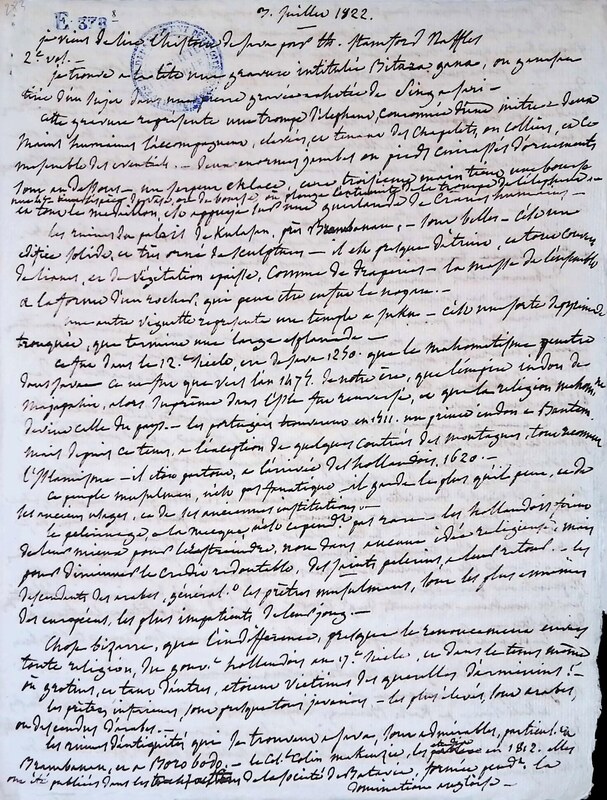 E 378 8
3. juillet 1822.
je viens de lire l'histoire de java par th. Stamford Raffles
2e vol. -
je trouve a la tête une gravure intitulée Bitara gana, ou ganesa
tirée d'un bijou dans une pierre gravée achetée de Singasari -
cette gravure represente une trompe d'elephant, couronnée d'une mitre - deux
mains humaines l'accompagnent, elevées, et tenant des chapelets, ou colliers, et ce
des orientals - deux enormes jambes ou pieds cuirassés d'ornements,
sont au dessous - un serpent enlacé, une troisieme main tient une bourse
ou de bourse, ou plonge l'extremité de la trompe de l'elephant -
et tout le medaillon, est appuyé sur une guirlande de cranes humains -
les ruines du palais de Kalasan, près Brambanan, - sont belles - c'est une
edifice solide, et très orné de sculptures - il est presque detruit, et tout couvert
de lianes, et de végétation épaisse, comme de draperies - la masse de l'ensemble
a la forme d'un rocher, qui peut être entre le nôtre. -
une autre vignette represente une temple a suku - c'est une sorte de pyramide
tronquée, que termine une large esplanade -
ce fut dans le 12.e siecle, ere de java 1250. que le mahometisme penetre
dans java - ce ne fut que vers l'an 1475. de notre ère, que l'empire indou de
Majapahit, alors suprême dans l'isle fut renversé, et que la religion mahome
devint celle du pays - les portugais trouverent en 1511. un prince indou a Bantam.
mais depuis ce tems, a l'exception de quelques contrées des montagnes, tout reconnut
l'Islamisme - il etoit partout, a l'arrivée des hollandois, 1620. -
ce peuple musulman, n'est pas fanatique - il garde le plus qu'il peut, et de
ses anciens usages, et de ses anciennes institutions. -
le pelerinage a la mecque n'est cepend.t pas rare - les hollandois firent
de leur mieux pour le restreindre, non dans aucune idée religieuse, mais
pour diminuer le credit redoutable, des saints pelerins, a leur retour. - les
descendants des arabes, general.t les prêtres musulmans, sont les plus ennemis
des européens, les plus impatients de leur joug. -
Chose bizarre, que l'indifference, presque le renoncement envers
toute religion, du gouv.t hollandois au 17.e siecle, et dans le tems même
où grotius, et tant d'autres, etoient victimes des querelles d'arminiens! -
les prêtres inferieurs, sont presque tous javanois - les plus élevés, sont arabes
ou descendus d'arabes. -
les ruines d'antiquité que je trouve a java, sont admirables, particul. à
Brambanan, et a Borobodo. - le Cl. Colin makenzie, les en 1812. elles
ont été publiées dans les de la société de Batavia, formée pend.t la
domination angloise -